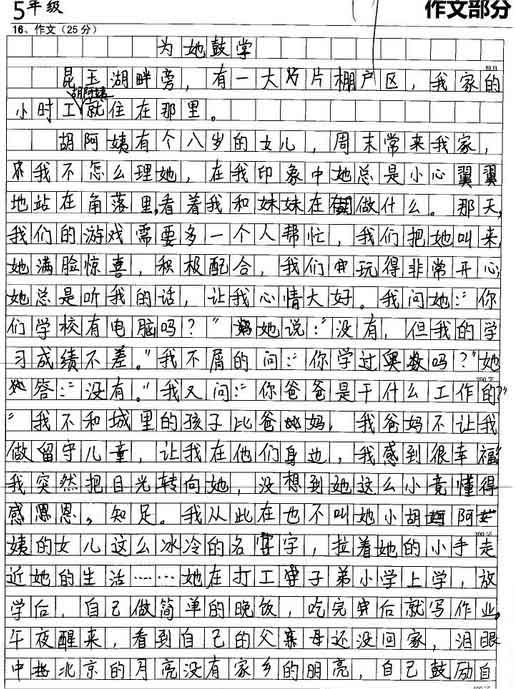 5年级
作文部分
16、作文（25分）
为她鼓掌
昆玉湖畔旁，有一大片棚户区，我家的
小时工胡阿姨就住在那里。
胡阿姨有个八岁的女儿，周末常来我家，
我不怎么理她，在我印象中她总是小心翼翼
地站在角落里，看着我和妹妹在做什么。那天，
我们的游戏需要多一个人帮忙，我们把她叫来，
她满脸惊喜，积极配合，我们玩得非常开心，
她总是听我的话，让我心情大好。我问她："你
们学校有电脑吗？"她说："没有，但我的学
习成绩不差。"我不屑的问："你学过奥数吗？"她
答："没有。"我又问："你爸爸是干什么工作的？"
"我不和城里的孩子比爸妈，我爸妈不让我
做留守儿童，让我在他们身边，我感到很幸福
我突然把目光转向她，没想到她这么小竟懂得
感恩，知足。我从此在也不叫她小胡阿
姨的女儿这么冰冷的名字，拉着她的小手走
近她的生活……她在打工子弟小学上学，放
学后，自己做简单的晚饭，吃完后就写作业。
午夜醒来，看到自己的父亲母还没回家，泪眼
中北京的月亮没有家乡的明亮，自己鼓励自